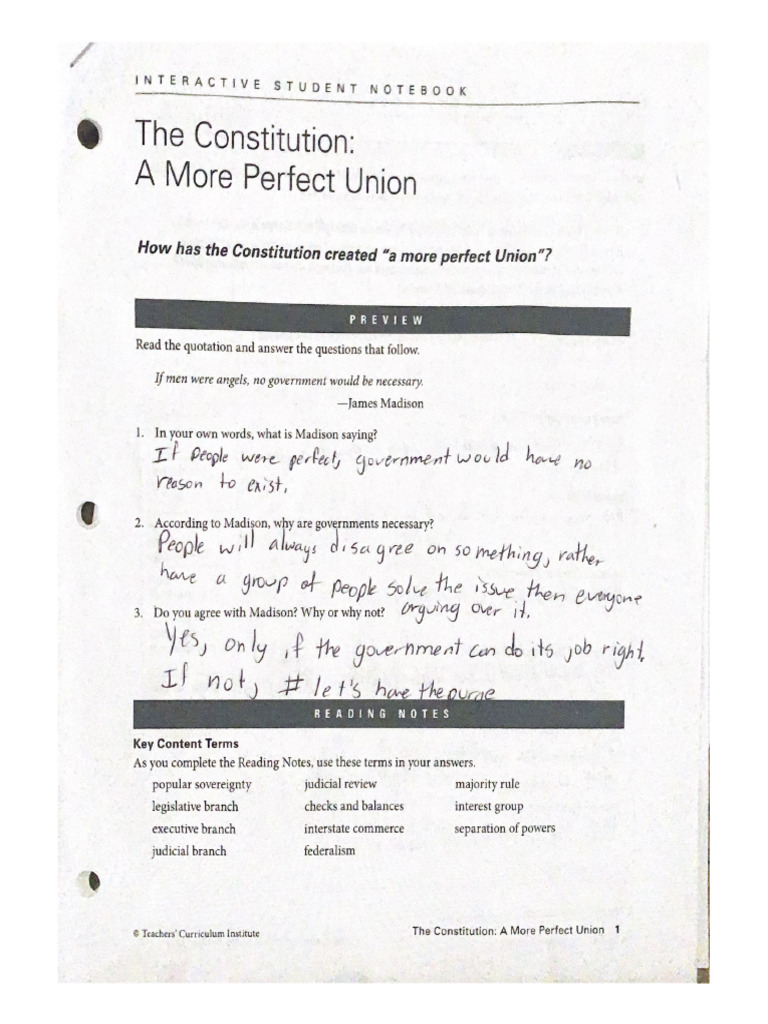 INTERACTIVE STUDENT NOTEBOOK
The Constitution:
A More Perfect Union
How has the Constitution created “a more perfect Union”?
PREVIEW
Read the quotation and answer the questions that follow.
If men were angels, no government would be necessary.
—James Madison
1. In your own words, what is Madison saying?
If People were perfect, government would have no
reason to exist.
2. According to Madison, why are governments necessary?
People will always disagree on something, rather
have a group of people solve the issue then everyone
arguing over it.
3. Do you agree with Madison? Why or why not?
Yes, only if the government can do its job right.
If not, # let's have the purge
READING NOTES
Key Content Terms
As you complete the Reading Notes, use these terms in your answers.
popular sovereignty judicial review majority rule
legislative branch checks and balances interest group
executive branch interstate commerce separation of powers
judicial branch federalism
© Teachers' Curriculum Institute The Constitution: A More Perfect Union 1